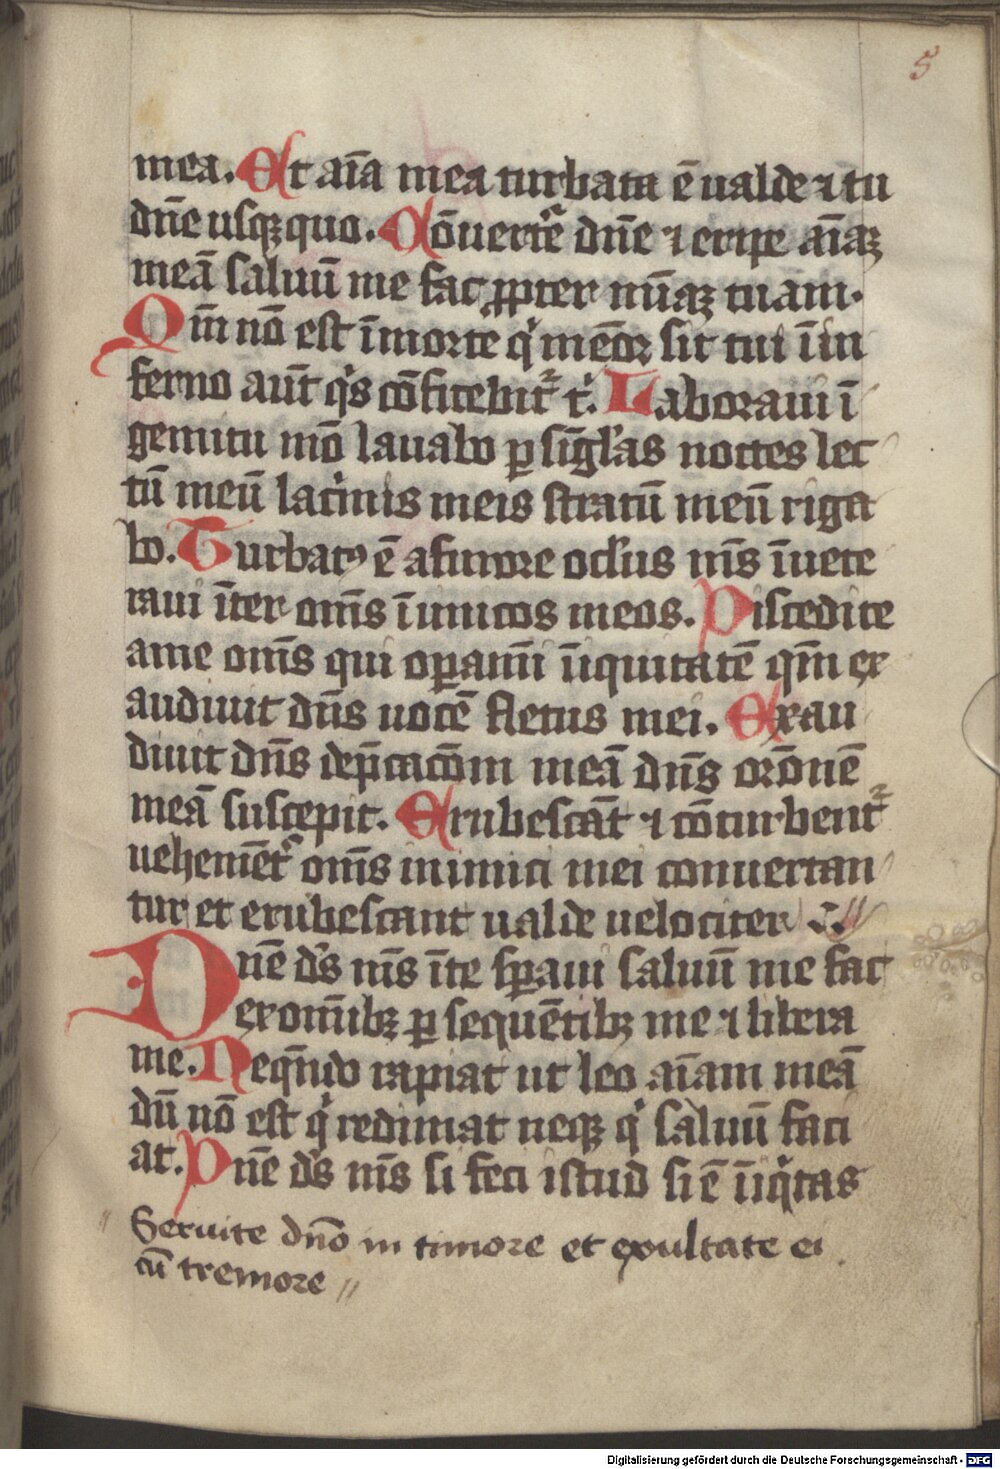 5
mea. Et aīa mea turbata ē ualde ⁊ tu
dn̄e usqꝫ quo. Cōuerte᷑ dn̄e ⁊ eripe aīaꝫ
meā saluū me fac ꝓpter mīaꝫ tuam.
Qm̄ nō est ī morte qͥ memōr sit tui ī in
ferno aūt qͥs cōfitebit᷑ tͥ. Laboraui ī
gemitu mō lauabo ꝑ sīgl'as noctes lec
tū meū lacͥmis meis stratū meū riga
bo. Turbatꝰ ē a furore ocl'us ms̄ īuete
raui īter oms̄ īimicos meos. Discedite
a me oms̄ qui oꝑamī īiquitatē qm̄ ex
audiuit dn̄s uocē fletus mei. Exau
diuit dn̄s dep̄cacōm meā dn̄s orōnē
meā suscepit. Erubescāt ⁊ cōturbent᷑
uehemēt᷑ oms̄ inimici mei conuertan
tur et erubescant ualde uelociter
Dn̄e ds̄ ms̄ ī te sꝑaui saluū me fac
ex omībꝫ ꝑsequētibꝫ me ⁊ libera
me. Neqn̄do rapiat ut leo aīam meā
dū nō est qͥ redimat neqꝫ qͥ saluū faci
at. Dn̄e ds̄ ms̄ si feci istud si ē īiqͥtas
Seruite dn̄o in timore et exultate ei
cū tremore
Digitalisierung gefördert durch die Deutsche Forschungsgemeinschaft - DFG